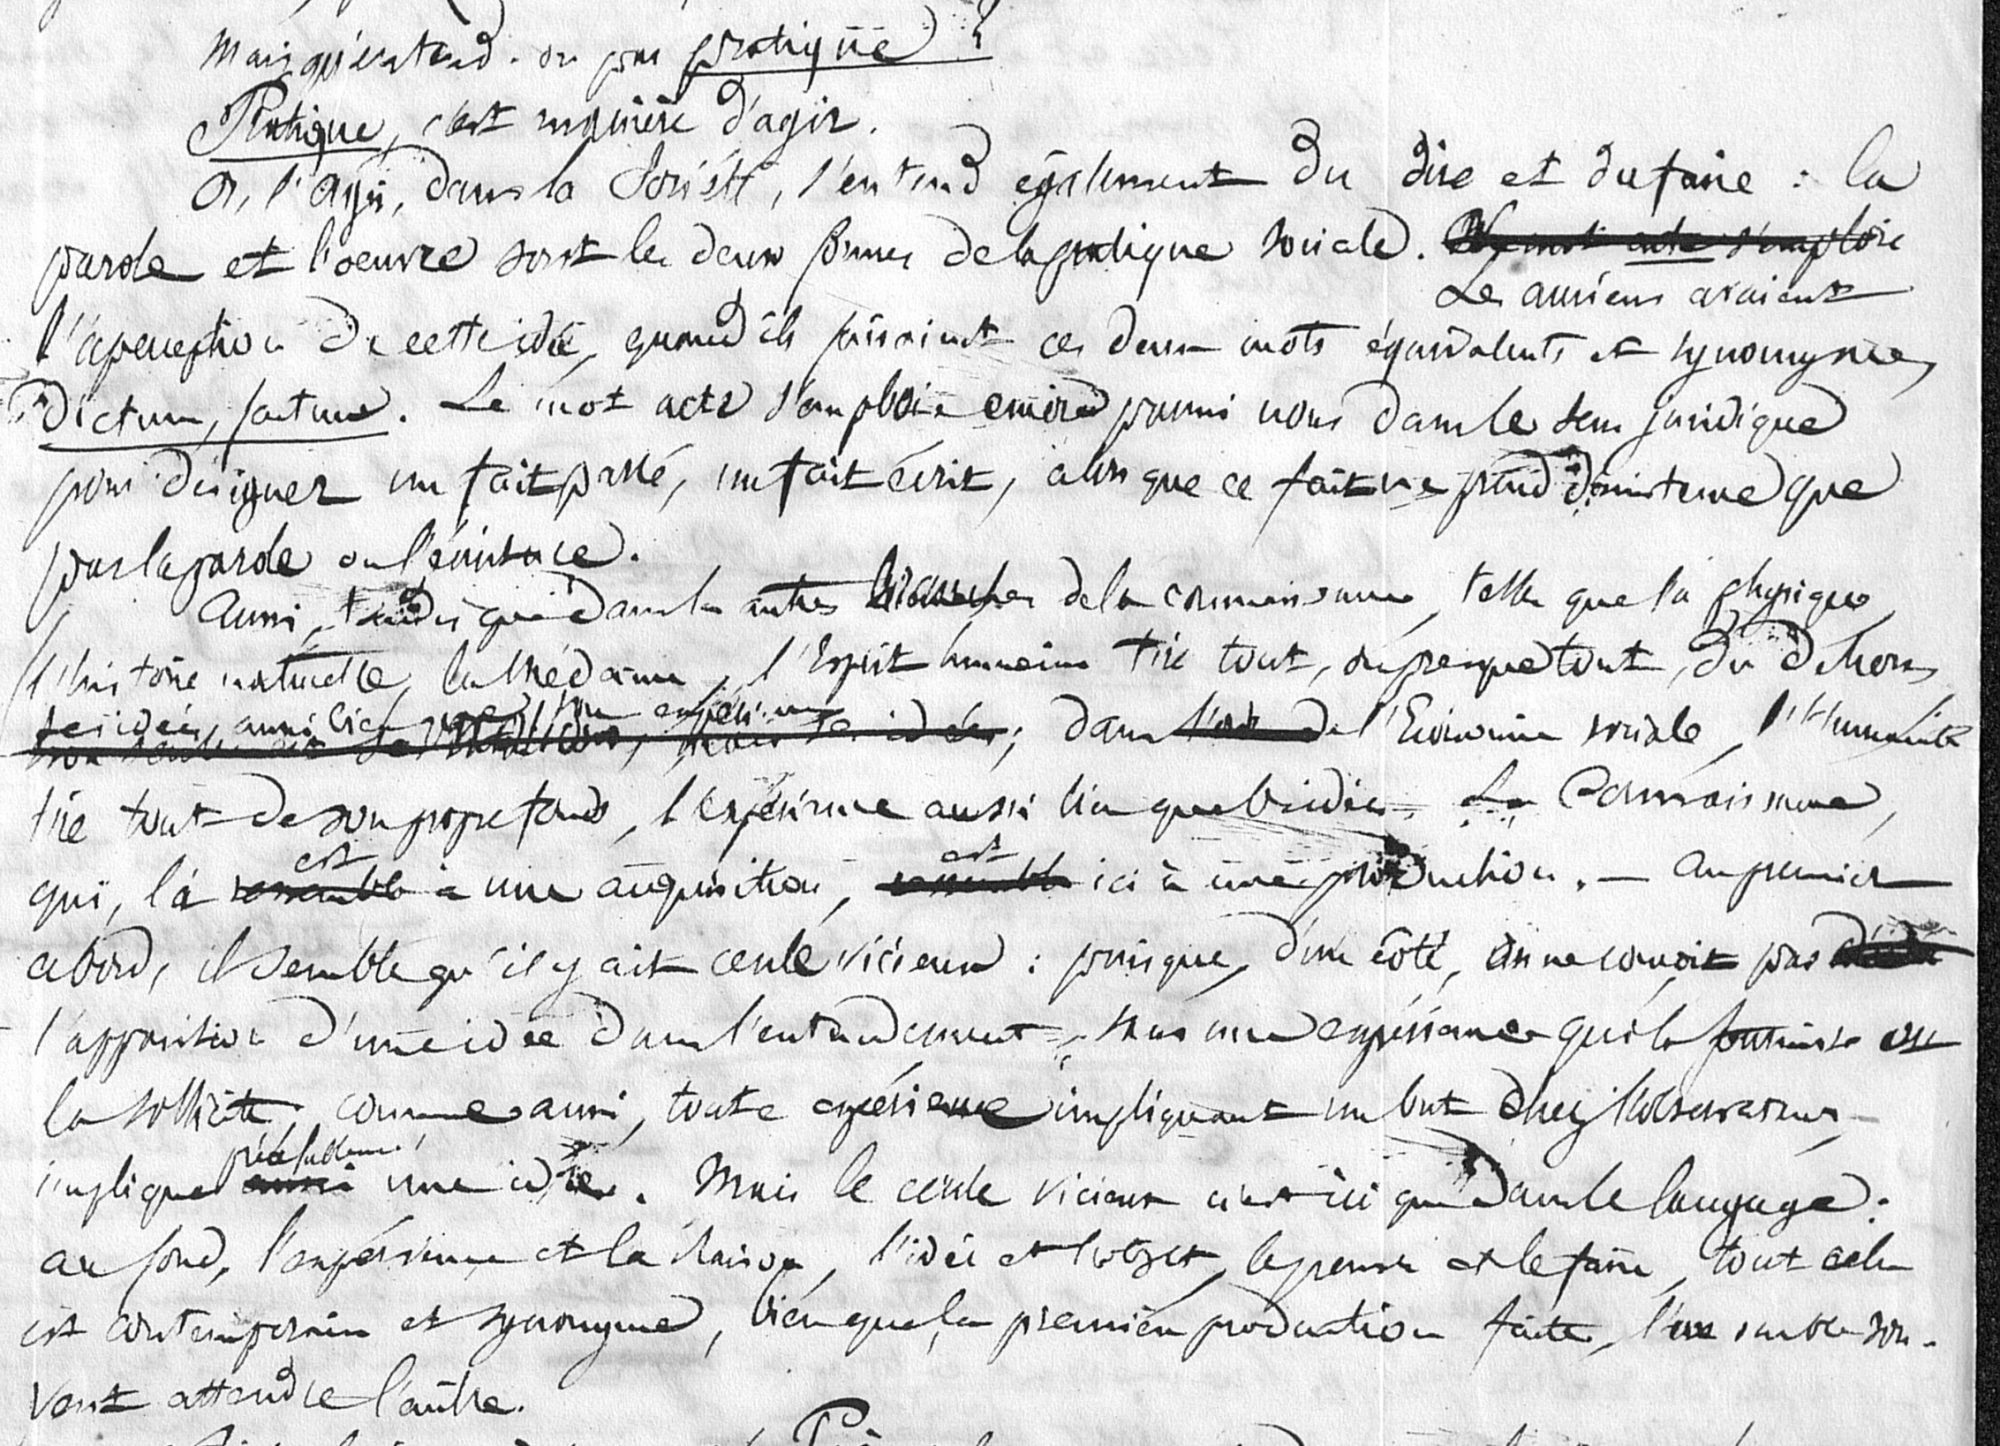 Mais qu'entend-on par pratique ?
Pratique, c'est manière d'agir.
Or, l'agir, dans la Société, s'entend également du dire et du faire : la
parole et l'oeuvre sont les deux formes de la pratique sociale. Le mot acte s'emploie
Les anciens avaient
l'aperception de cette idée, quand ils faisaient ces deux mots équivalents et synonymes,
dictum, factum. Le mot acte s'emploie encore parmi nous dans le sens juridique
pour désigner un fait passé, un fait écrit, alors que ce fait ne prend d'existence que
par la parole ou l'écriture.
Aussi, tandis que dans les autres branches de la connaissance, telles que la physique,
l'histoire naturelle, la médecine, l'Esprit humain tire tout, ou presque tout, du dehors
ses idées aussi bien que son expérience
ses idées ; dans l'ordre de l'Economie sociale, l'Humanité
tire tout de son propre fonds, l'expérience aussi bien que l'idée. La Connaissance,
est est
qui, là ressemble à une acquisition, ressemble ici à une production. — Au premier
abord, il semble qu'il y ait cercle vicieux : puisque, d'un côté, on ne conçoit pas
l'apparition d'une idée dans l'entendement, sans une expérience qui la fournisse ou
la sollicite, comme aussi, toute expérience impliquant un but chez l'observateur,
préalablement
implique aussi une idée. Mais le cercle vicieux n'est ici que dans le langage :
au fond, l'expérience et la raison, l'idée et l'objet, le penser et le faire, tout cela
est contemporain et synonyme, bien que, la première production faite, l'un semble sou-
vent attendre l'autre.